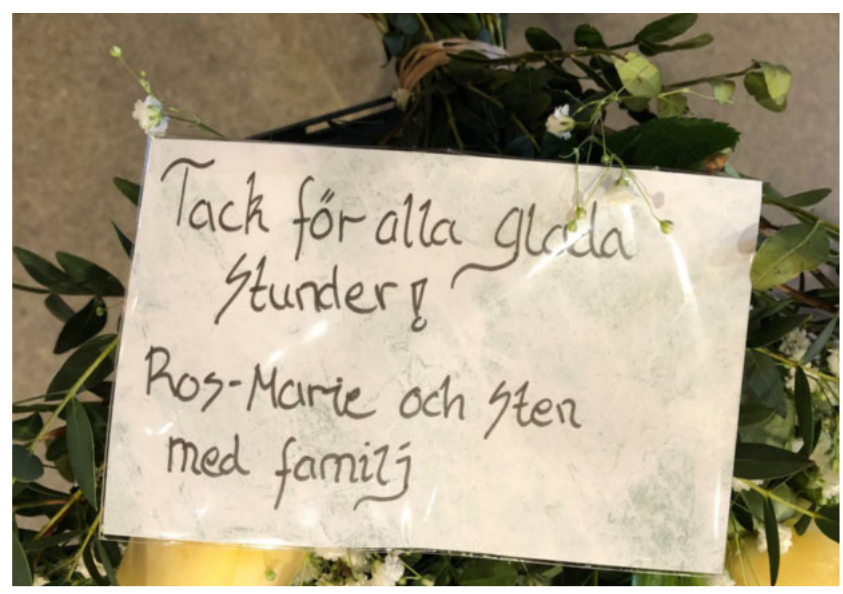 Tack för alla glada
stunder!
Ros-Marie och Sten
med familj